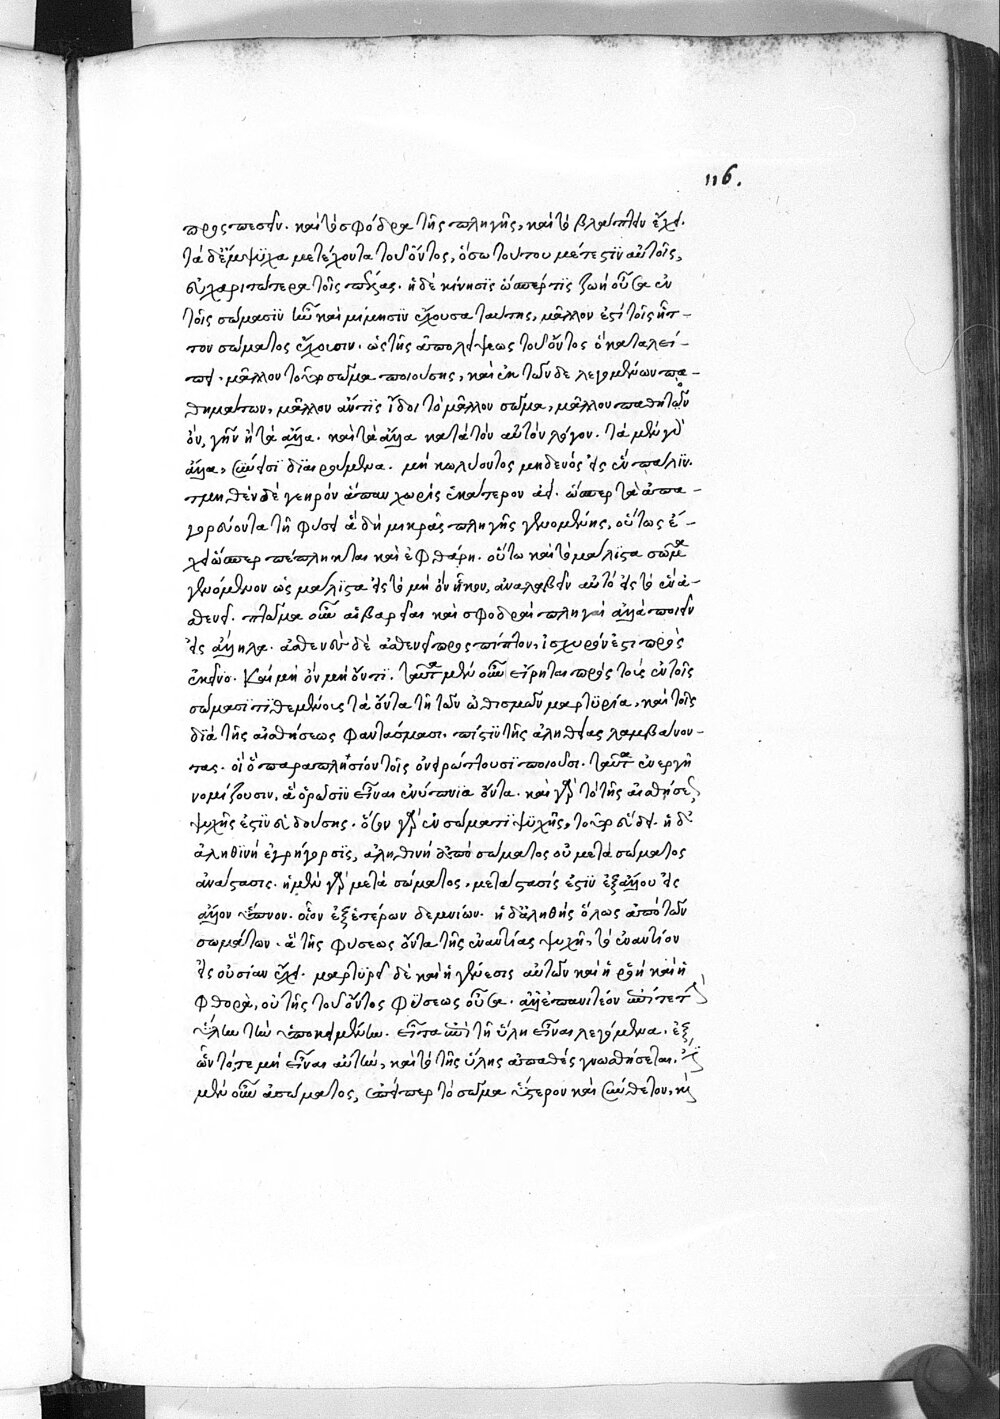 116.
προσπεσεῖν. καὶ τὸ σφόδρα τῆς πληγῆς, καὶ τὸ βλάπτειν ἔχει.
τὰ δὲ ἔμψυχα μετέχοντα τοῦ ὄντος, ὅσω τούτου μέτεστιν αὐτοῖς,
εὐχαριτώτερα τοῖς πέλας. ἡ δὲ κίνησις ὥσπερ τὶς ζωὴ οὖσα ἐν
τοῖς σώμασιν καὶ μίμησιν ἔχουσα ταύτης, μᾶλλον ἐστὶ τοῖς ἧτ-
τον σώματος ἔχουσιν. ὡς τῆς ἀπολείψεως τοῦ ὄντος ὃ καταλεί-
πει. μᾶλλον τοῦτο σῶμα ποιούσης, καὶ ἐκ τῶν δὲ λεγομένων πα-
θημάτων, μᾶλλον ἄν τις ἴδοι τὸ μᾶλλον σῶμα, μᾶλλον παθητὸν
ὄν, γῆν ἢ τὰ ἄλλα. καὶ τὰ ἄλλα κατὰ τὸν αὐτὸν λόγον. τὰ μὲν γὰρ
ἄλλα, σύνεισι διαιρούμενα. μὴ κωλύοντος μηδενὸς εἰς ἓν πάλιν.
τμηθὲν δὲ γεηρὸν ἅπαν χωρὶς ἑκάτερον ἀεί. ὥσπερ τὰ ἀπα-
γορεύοντα τῇ φύσει ἃ δὴ μικρᾶς πληγῆς γενομένης, οὕτως ἔ-
χει ὥσπερ πέπληκται καὶ ἐφθάρη. οὕτω καὶ τὸ μάλιστα σῶμα
γενόμενον ὡς μάλιστα εἰς τὸ μὴ ὂν ἧκον, ἀναλαβεῖν αὐτὸ εἰς τὸ ἓν ἀ-
σθενεῖ. πτῶμα οὖν αἱ βαρεῖαι καὶ σφοδραὶ πληγαὶ ἀλλὰ ποιεῖν
εἰς ἄλληλα. ἀσθενὲς δὲ ἀσθενεῖ προσπίπτον, ἰσχυρόν ἐστι πρὸς
ἐκεῖνο. καὶ μὴ ὂν μὴ ὄντι. ταῦτα μὲν οὖν εἴρηται πρὸς τοὺς ἐν τοῖς
σώμασι τιθεμένους τὰ ὄντα τῇ τῶν ὠθισμῶν μαρτυρία, καὶ τοῖς
διὰ τῆς αἰσθήσεως φαντάσμασι. πίστιν τῆς ἀληθείας λαμβάνον-
τας. οἳ παραπλήσιον τοῖς ὀνειρώττουσι ποιοῦσι. ταῦτα ἐνεργεῖν
νομίζουσιν, ἃ ὁρῶσιν εἶναι ἐνύπνια ὄντα. καὶ γὰρ τὸ τῆς αἰσθήσεως
ψυχῆς ἐστιν εὑδούσης. ὅσον γὰρ ἐν σώματι ψυχῆς, τοῦτο εὕδει. ἡ δ
ἀληθινὴ ἐγρήγορσις, ἀληθινὴ ἀπὸ σώματος οὐ μετὰ σώματος
ἀνάστασις. ἡ μὲν γὰρ μετὰ σώματος, μετάστασίς ἐστιν ἐξ ἄλλου εἰς
ἄλλον ὕπνον. οἷον ἐξ ἑτέρων δεμνίων. ἡ δ ἀληθὴς ὅλως ἀπὸ τῶν
σωμάτων. ἃ τῆς φύσεως ὄντα τῆς ἐναντίας ψυχῇ, τὸ ἐναντίον
εἰς οὐσίαν ἔχει. μαρτυρεῖ δὲ καὶ ἡ γένεσις αὐτῶν καὶ ἡ ῥοὴ καὶ ἡ
φθορὰ, οὐ τῆς τοῦ ὄντος φύσεως οὖσα. ἀλλ ἐπανιτέον ἐπί τε τὴν
ὕλην τὴν ὑποκειμένην. εἶτα ἐπὶ τῇ ὕλῃ εἶναι λεγόμενα. ἐξ
ὧν τό,τε μὴ εἶναι αὐτήν, καὶ τὸ τῆς ὕλης ἀπαθὲς γνωσθήσεται. ἔστι
μὲν οὖν ἀσώματος, ἐπείπερ τὸ σῶμα ὕστερον καὶ σύνθετον, καὶ